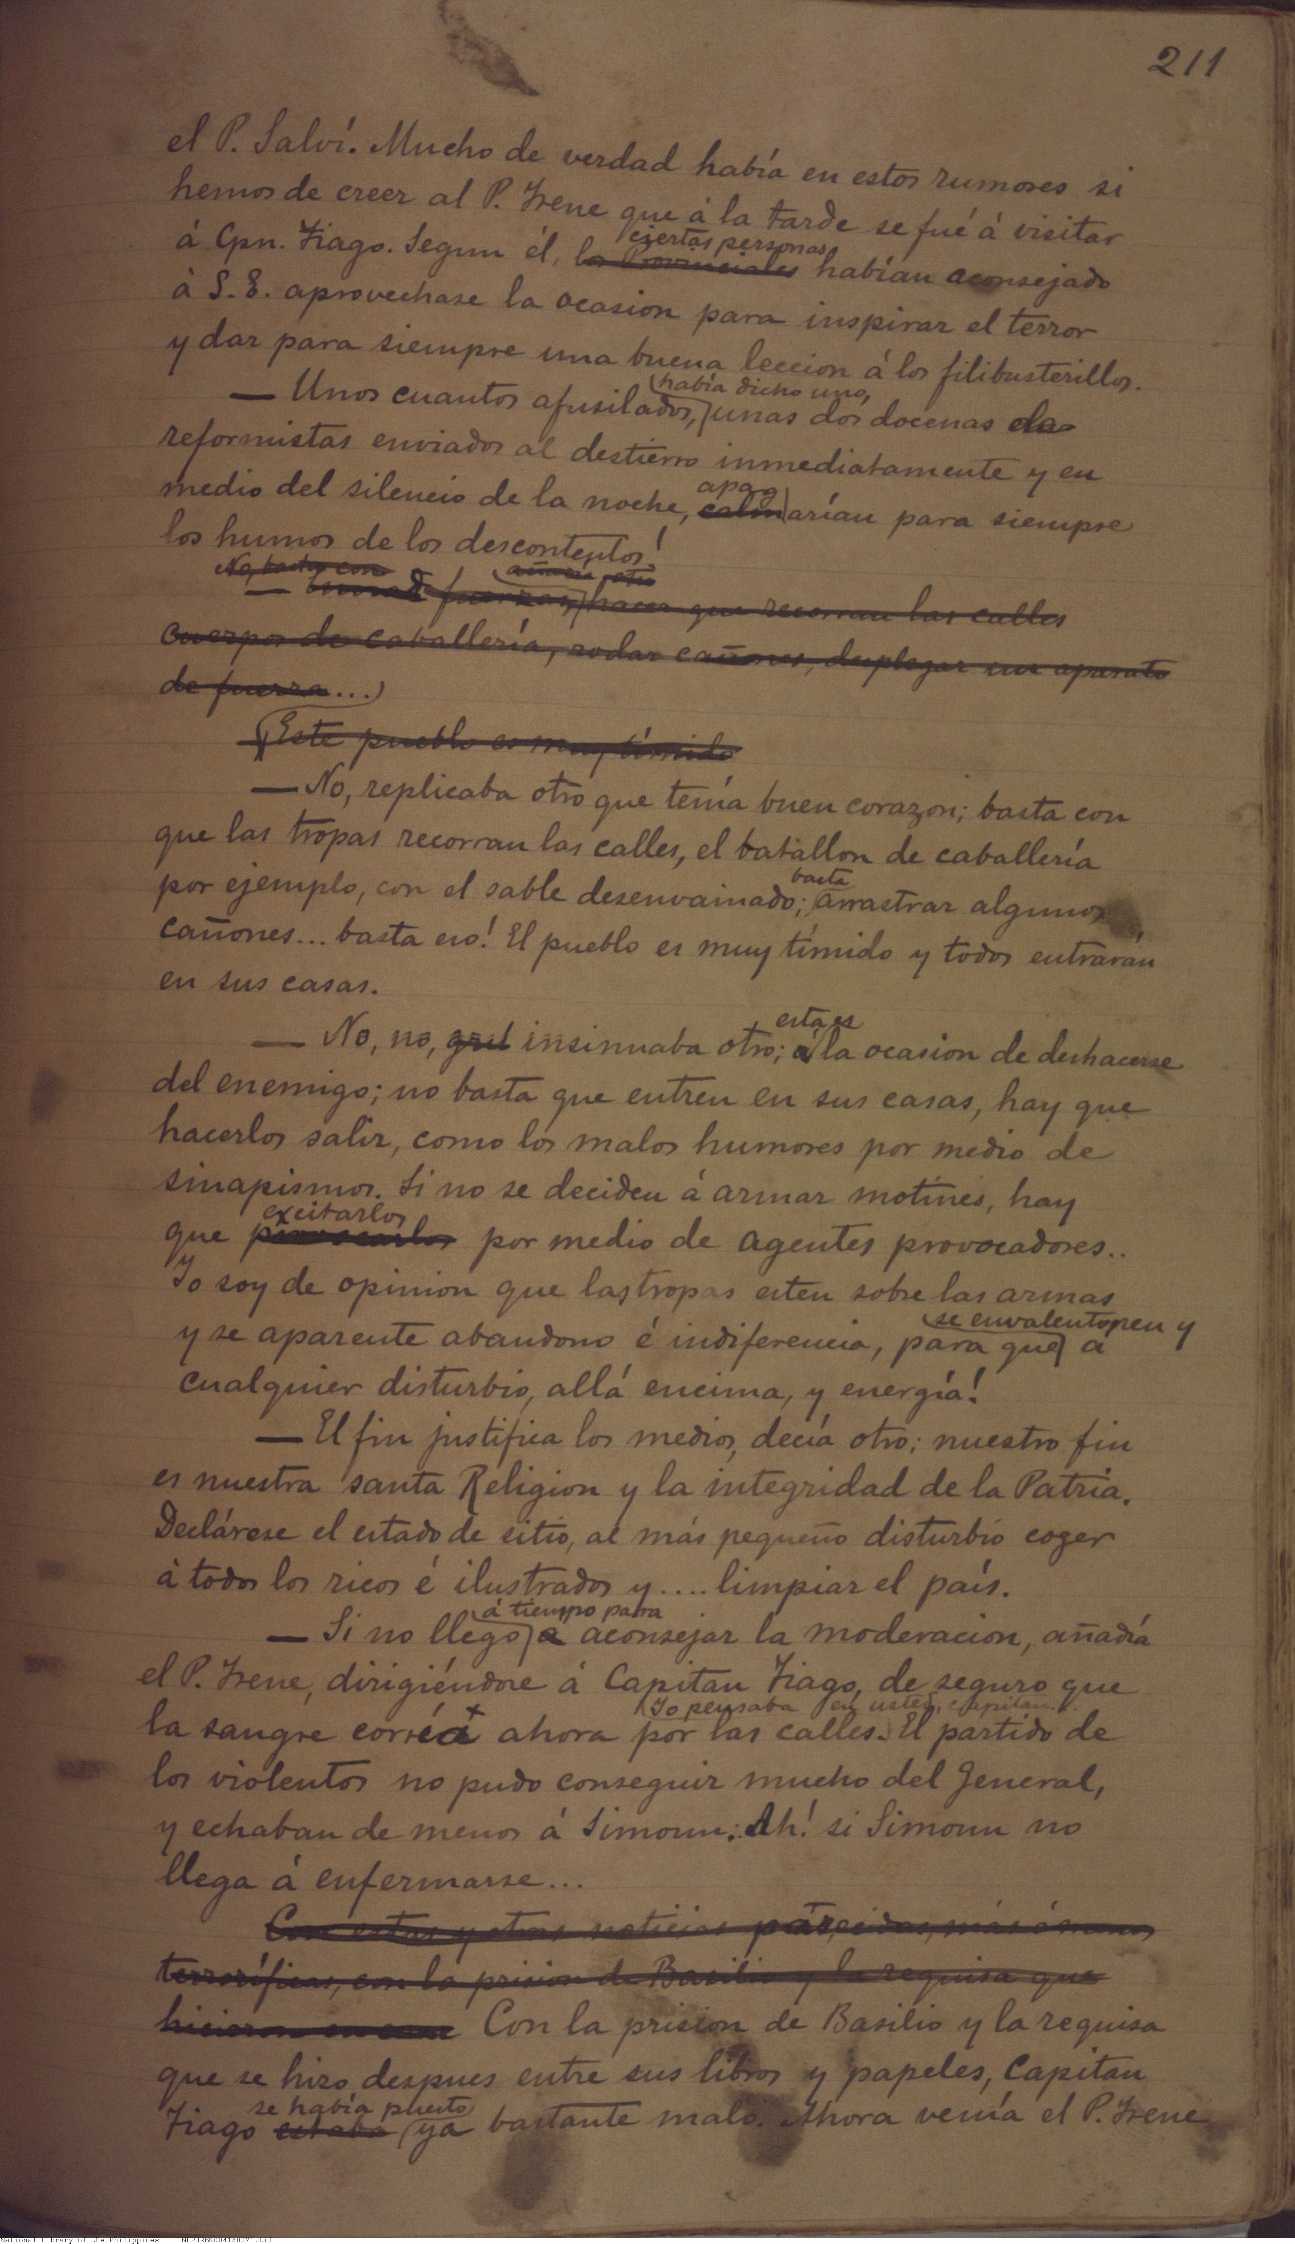 211
el P. Salví. Mucho de verdad había en estos rumores si
hemos de creer al P. Irene que á la tarde se fué á visitar
á Cpn. Tiago. Segun él, los Provinciales ciertas personas habían aconsejado
á S.E. aprovechase la ocasion para inspirar el terror
y dar para siempre una buena leccion á los filibusterillos.
— Unos cuantos afusilados, había dicho uno, unas dos docenas de
reformistas enviados al destierro inmediatamente y en
medio del silencio de la noche, calm apagarían para siempre
los humos de los descontentos!
No, basta con añadía otro
— fuerzas, hacer que recorran las calles
cuerpos de caballería, rodar cañones, desplegar un aparato
de fuerza...
Este pueblo es muy tímido
— No, replicaba otro que tenía buen corazon; basta con
que las tropas recorran las calles, el batallon de caballería
por ejemplo, con el sable desenvainado; basta arrastrar algunos
cañones... basta eso! El pueblo es muy tímido y todos entrarán
en sus casas.
— No, no, insinuaba otro; esta es la ocasion de deshacerse
del enemigo; no basta que entren en sus casas, hay que
hacerlos salir, como los malos humores por medio de
sinapismos. Si no se deciden á armar motines, hay
que provocarlos excitarlos por medio de agentes provocadores..
Yo soy de opinion que las tropas esten sobre las armas
y se aparente abandono é indiferencia, para que se envalentonen y á
cualquier disturbio, allá encima, y energía!
— El fin justifica los medios, decía otro; nuestro fin
es nuestra santa Religion y la integridad de la Patria.
Declárese el estado de sitio, al más pequeño disturbio coger
á todos los ricos é ilustrados y.... limpiar el país.
— Si no llego á tiempo para a aconsejar la moderacion, añadía
el P. Irene, dirigiéndose á Capitan Tiago, de seguro que
la sangre ahora por las calles. Yo pensaba en usted, capitan... El partido de
los violentos no pudo conseguir mucho del General,
y echaban de menos á Simoun. Ah! si Simoun no
llega á enfermarse...
Con estas y otras noticias parecidas, más ó menos
terroríficas, con la prision de Basilio y la requisa que
hicieron en Con la prision de Basilio y la requisa
que se hizo despues entre sus libros y papeles, Capitan
Tiago estaba se había puesto ya bastante malo. Ahora venía el P. Irene